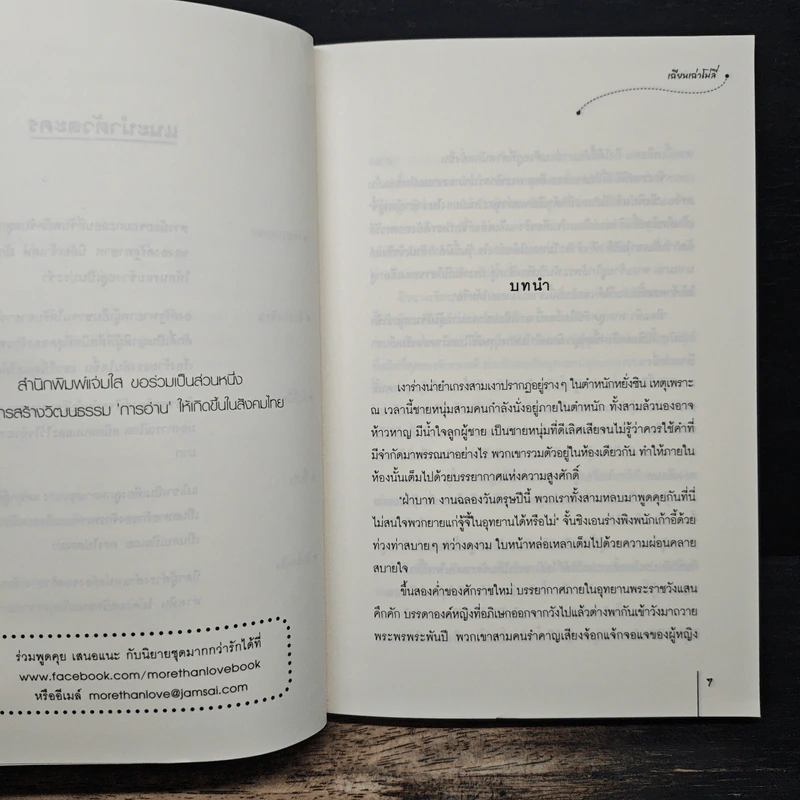 สำนักพิมพ์แจ่มใส ขอร่วมเป็นส่วนหนึ่ง
ารสร้างวัฒนธรรม 'การอ่าน' ให้เกิดขึ้นในสังคมไทย
ร่วมพูดคุย เสนอแนะ กับนิยายชุดมากกว่ารักได้ที่
www.facebook.com/morethanlovebook
หรืออีเมล์ morethanlove@jamsai.com
เฉียนเฉ่าโม่ลี่
บทนำ
เงาร่างน่ายำเกรงสามเงาปรากฏอยู่รางๆ ในตำหนักหยั่งซิน เหตุเพราะ
ณ เวลานี้ชายหนุ่มสามคนกำลังนั่งอยู่ภายในตำหนัก ทั้งสามล้วนองอาจ
ห้าวหาญ มีน้ำใจลูกผู้ชาย เป็นชายหนุ่มที่ดีเลิศเสียจนไม่รู้ว่าควรใช้คำที่
มีจำกัดมาพรรณนาอย่างไร พวกเขารวมตัวอยู่ในห้องเดียวกัน ทำให้ภายใน
ห้องนั้นเต็มไปด้วยบรรยากาศแห่งความสูงศักดิ์
"ฝ่าบาท งานฉลองวันตรุษปีนี้ พวกเราทั้งสามหลบมาพูดคุยกันที่นี่
ไม่สนใจพวกยายแก่จู้จี้ในอุทยานได้หรือไม่" จั้นชิงเอนร่างพิงพนักเก้าอี้ด้วย
ท่วงท่าสบายๆ ทว่างดงาม ใบหน้าหล่อเหลาเต็มไปด้วยความผ่อนคลาย
สบายใจ
ขึ้นสองค่ำของศักราชใหม่ บรรยากาศภายในอุทยานพระราชวังแสน
คึกคัก บรรดาองค์หญิงที่อภิเษกออกจากวังไปแล้วต่างพากันเข้าวังมาถวาย
พระพรพระพันปี พวกเขาสามคนรำคาญเสียงจ้อกแจ้กจอแจของผู้หญิง
7